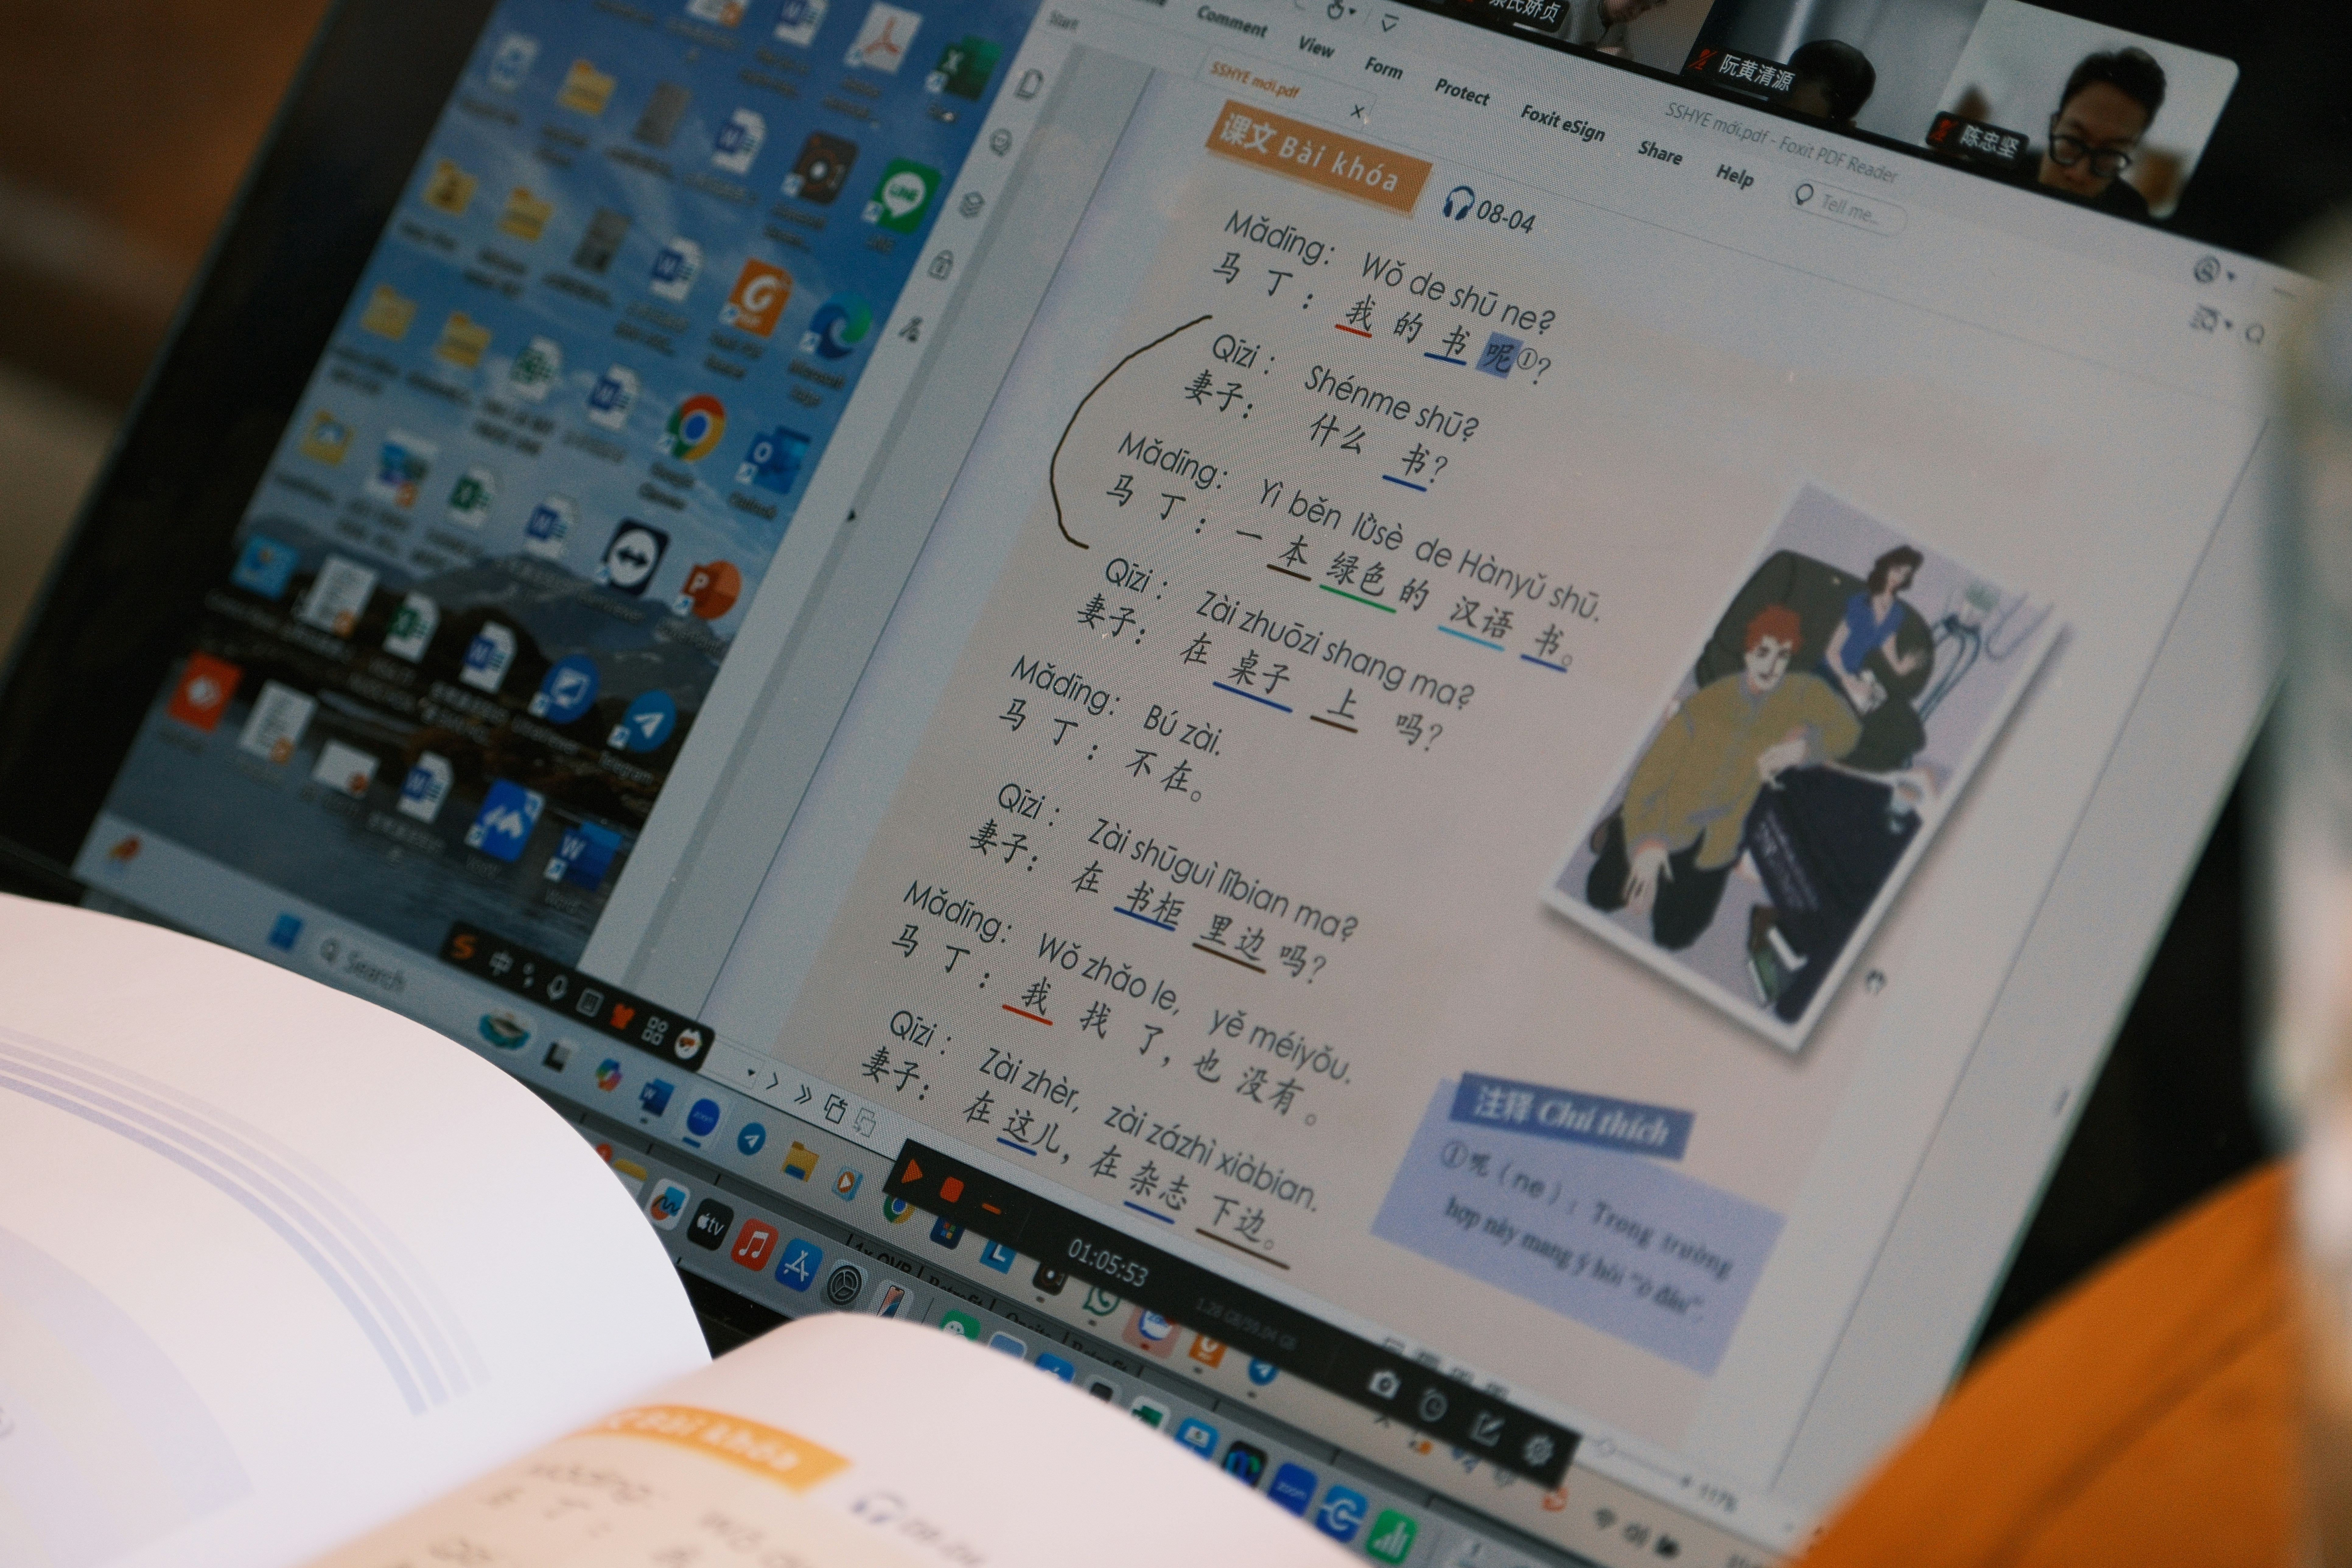 Comment View Form Protect Foxit eSign Share Help Tell me...
SSHYE mới.pdf - Foxit PDF Reader
阮黄清源
陈忠坚
Start
SSHYE mới.pdf
课文 Bài khóa
08-04
Mǎdīng: Wǒ de shū ne?
马丁：我的书呢①?
Qīzi: Shénme shū?
妻子：什么书?
Mǎdīng: Yì běn lǜsè de Hànyǔ shū.
马丁：一本绿色的汉语书。
Qīzi: Zài zhuōzi shang ma?
妻子：在桌子上吗?
Mǎdīng: Bú zài.
马丁：不在。
Qīzi: Zài shūguì lǐbian ma?
妻子：在书柜里边吗?
Mǎdīng: Wǒ zhǎo le, yě méiyǒu.
马丁：我找了，也没有。
Qīzi: Zài zhèr, zài zázhì xiàbian.
妻子：在这儿，在杂志下边。
注释 Chú thích
①呢（ne）: Trong trường
hợp này mang ý hỏi "ở đâu".
LINE
Telegram
Word
Search
中
01:05:53
tv
zoom
117%
Bài khóa